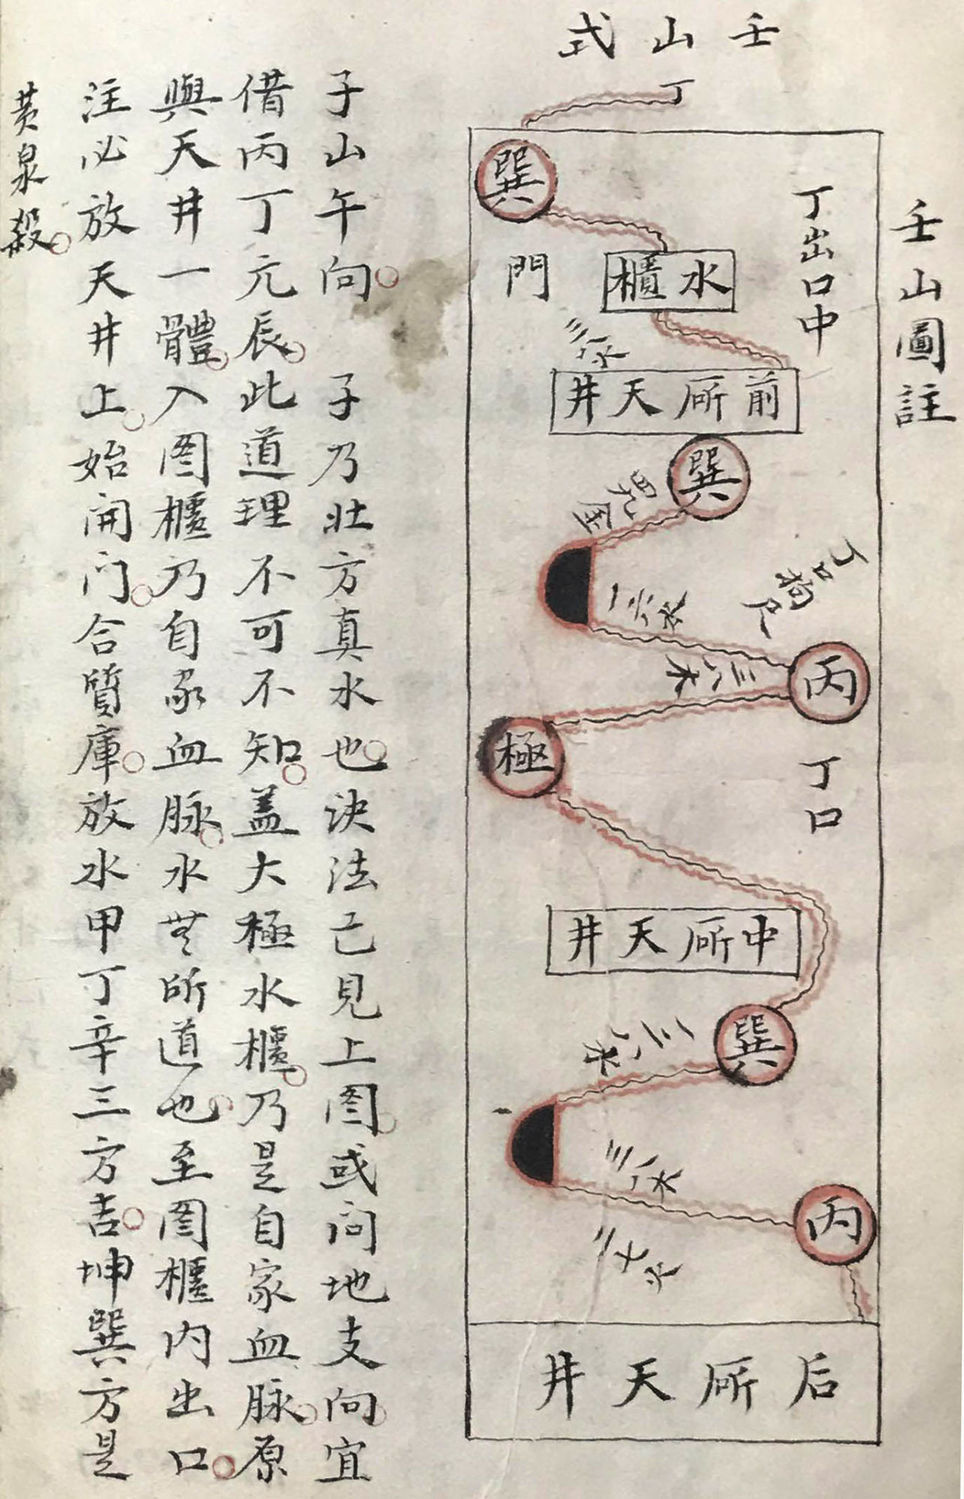 壬山式
壬山圖註
丁
巽
丁出口中
門
水櫃
三八木
前所天井
巽
四九金
丁口狗尺
一六水
丙
三八木
極
丁口
中所天井
巽
三八木
丙
二七火
后所天井
子山午向 子乃壯方真水也決法已見上图或问地支向宜
借丙丁亢辰此道理不可不知蓋大極水櫃乃是自家血脉原
與天井一體入图櫃乃自家血脉水無所道也至图櫃内出口
注必放天井上始開门合質庫放水甲丁辛三方吉坤巽方是
黄泉殺